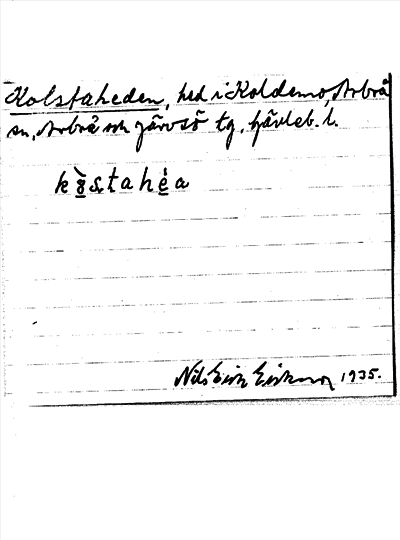 Kolstaheden, hed i Koldemo, Arbrå
sn, Arbrå och Järvsö tg, Gävleb. l.
kò̱stahé̱a
Nils Erik Eriksson 1935.